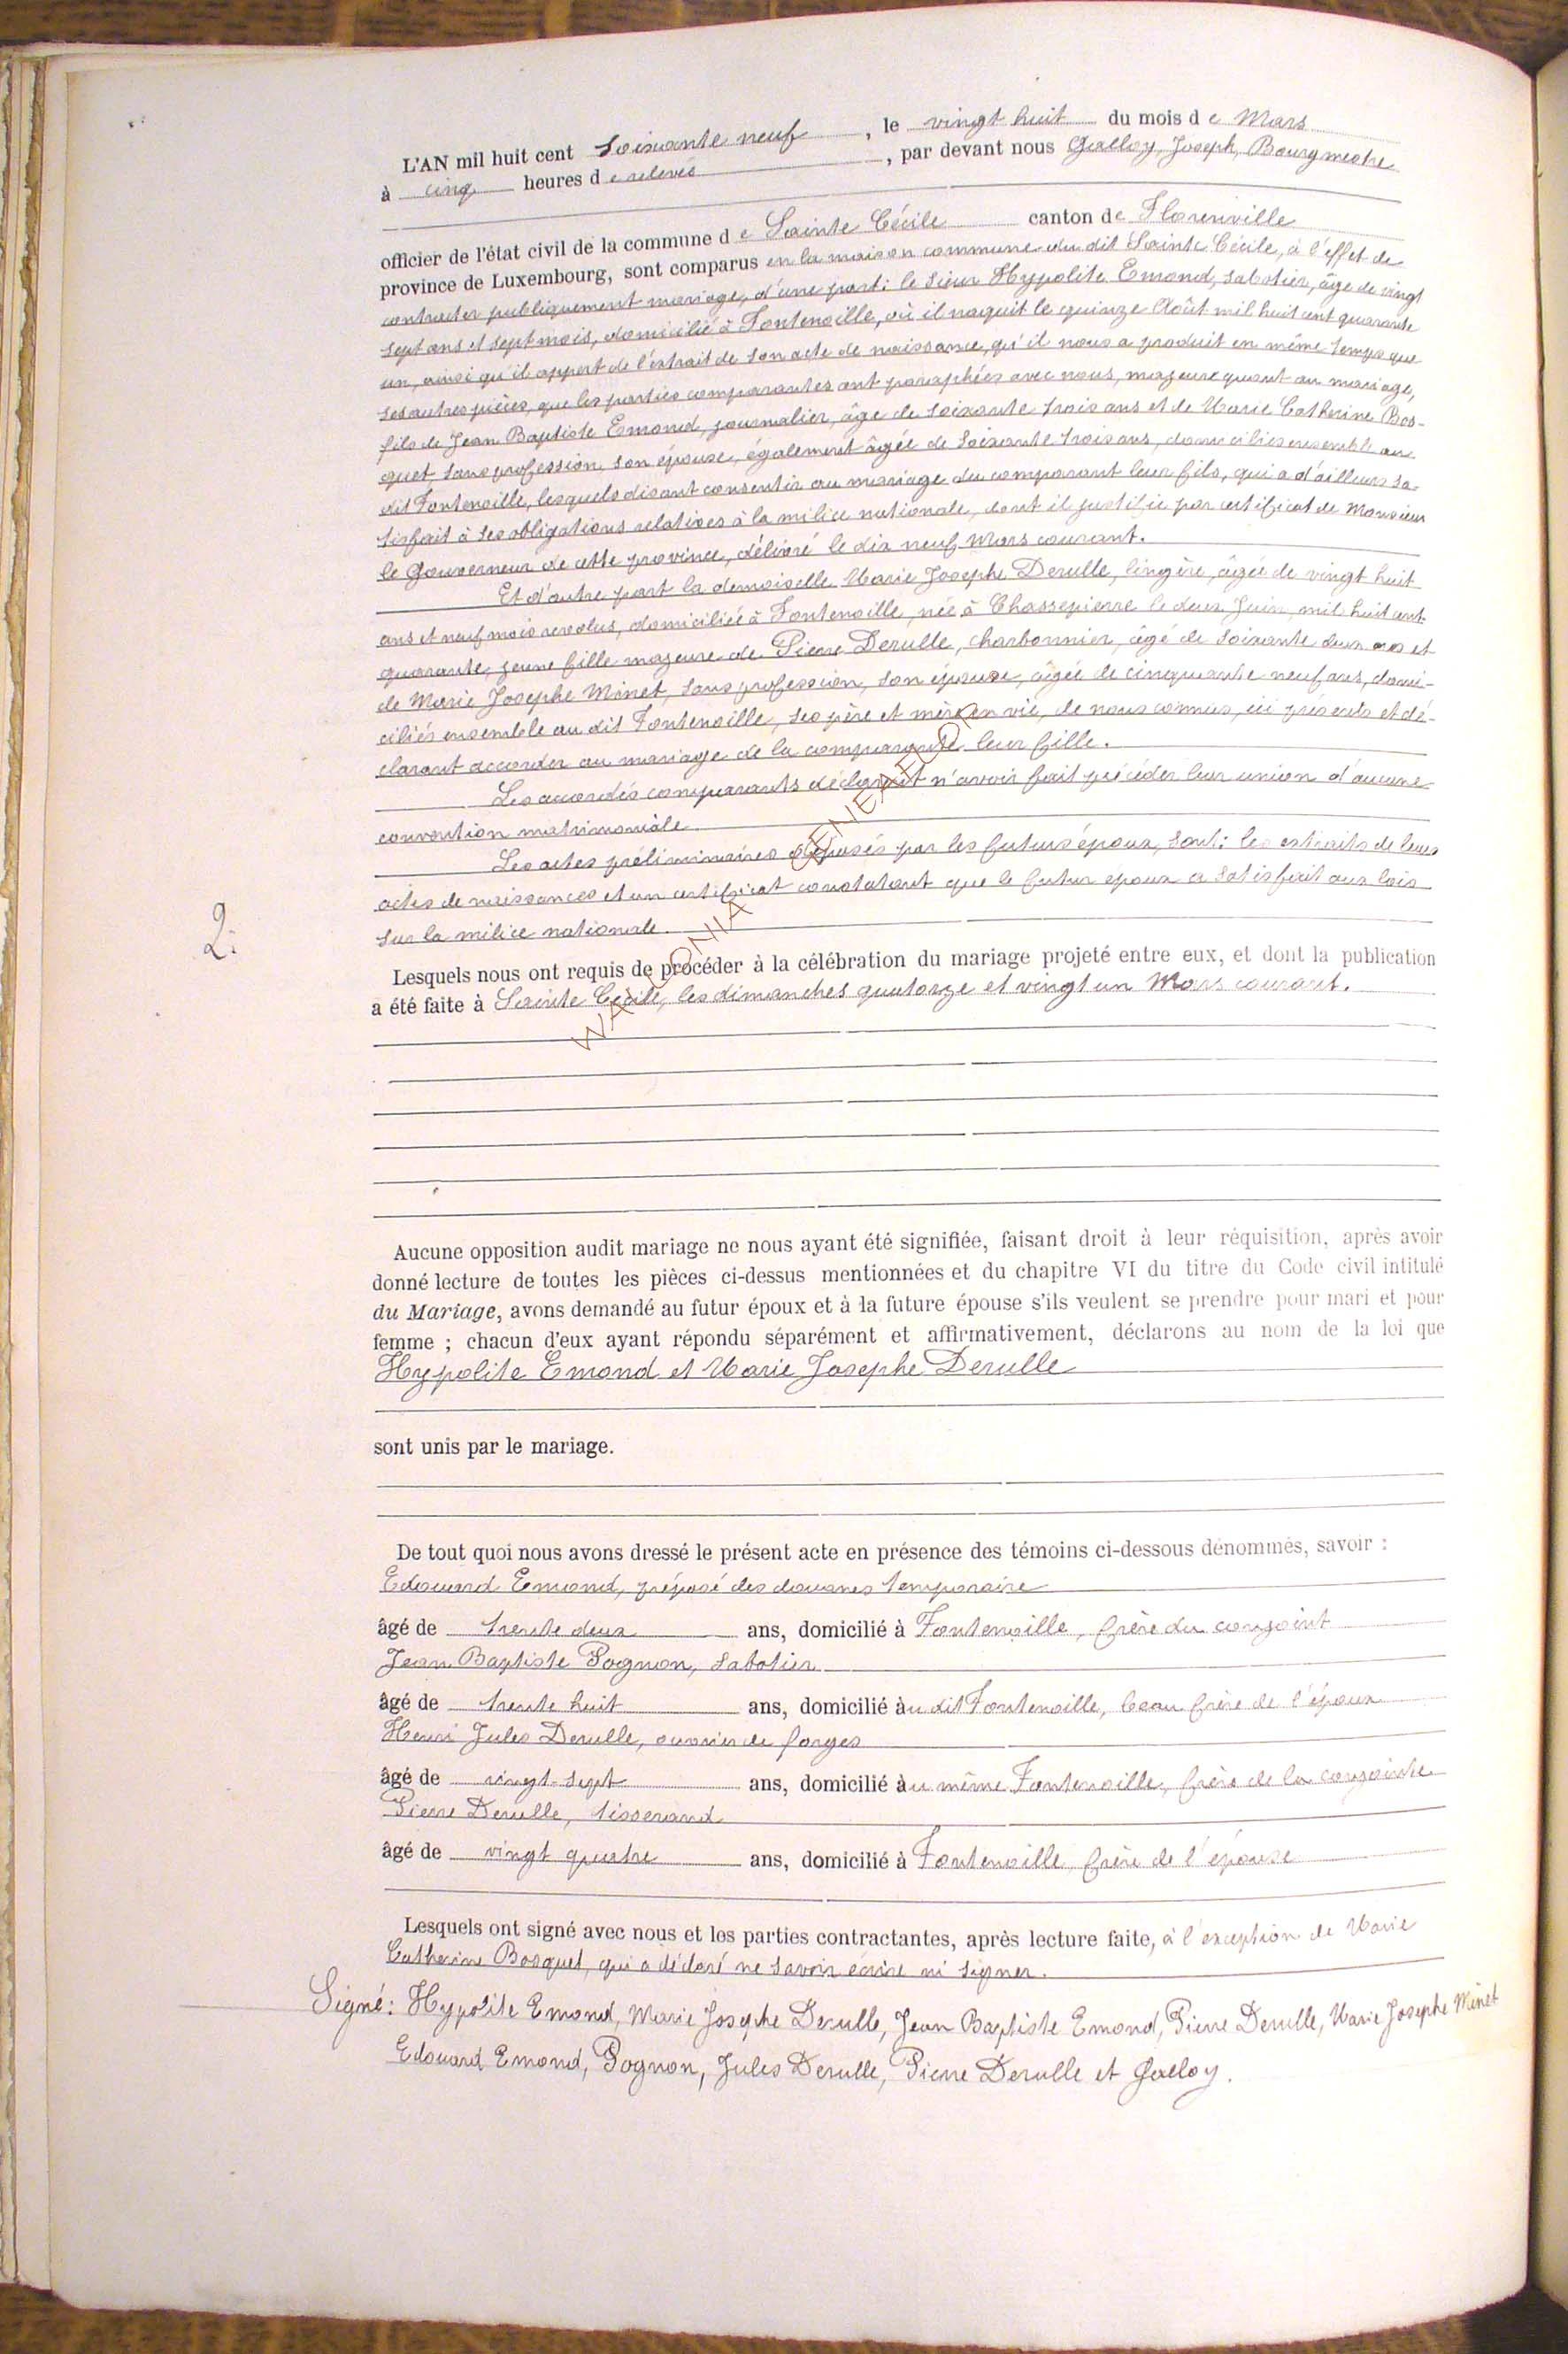 L'AN mil huit cent Soixante neuf, le vingt huit du mois de Mars
à cinq heures de relevée, par devant nous Galloy, Joseph, Bourgmestre
officier de l'état civil de la commune de Sainte Cécile canton de Florenville
province de Luxembourg, sont comparus en la maison commune du dit Sainte Cécile, à l'effet de
contracter publiquement mariage, d'une part: le Sieur Hypolite Emond, sabotier, âgé de vingt
sept ans et sept mois, domicilié à Fontenoille, où il naquit le quinze Août mil huit cent quarante
un, ainsi qu'il appert de l'extrait de son acte de naissance, qu'il nous a produit en même temps que
ses autres pièces, que les parties comparantes ont paraphées avec nous, majeur quant au mariage,
fils de Jean Baptiste Emond, journalier, âgé de soixante trois ans et de Marie Catherine Bos-
quet, sans profession, son épouse, également âgée de soixante trois ans, domiciliés ensemble au
dit Fontenoille, lesquels disant consentir au mariage du comparant leur fils, qui a d'ailleurs sa-
tisfait à ses obligations relatives à la milice nationale, dont il justifie par certificat de Monsieur
le Gouverneur de cette province, délivré le dix neuf Mars courant.
Et d'autre part la demoiselle Marie Josephe Derulle, lingère, âgée de vingt huit
ans et neuf mois revolus, domiciliée à Fontenoille, née à Chassepierre le deux Juin mil huit cent
quarante, jeune fille majeure de Pierre Derulle, charbonnier, âgé de soixante deux ans et
de Marie Josephe Minet, sans profession, son épouse, âgée de cinquante neuf ans, domi-
ciliés ensemble au dit Fontenoille, ses père et mère en vie, de nous connus, ici présents et dé-
clarant accorder au mariage de la comparante leur fille.
Les accordés comparants déclarent n'avoir fait précéder leur union d'aucune
convention matrimoniale.
Les actes préliminaires déposés par les futurs époux, sont: les extraits de leurs
actes de naissances et un certificat constatant que le futur époux a satisfait aux lois
sur la milice nationale.
2.
Lesquels nous ont requis de procéder à la célébration du mariage projeté entre eux, et dont la publication
a été faite à Sainte Cécile, les dimanches quatorze et vingt un Mars courant.
WALLONIA GENEALOGY
Aucune opposition audit mariage ne nous ayant été signifiée, faisant droit à leur réquisition, après avoir
donné lecture de toutes les pièces ci-dessus mentionnées et du chapitre VI du titre du Code civil intitulé
du Mariage, avons demandé au futur époux et à la future épouse s'ils veulent se prendre pour mari et pour
femme ; chacun d'eux ayant répondu séparément et affirmativement, déclarons au nom de la loi que
Hypolite Emond et Marie Josephe Derulle
sont unis par le mariage.
De tout quoi nous avons dressé le présent acte en présence des témoins ci-dessous dénommés, savoir :
Edouard Emond, préposé des douanes temporaire
âgé de trente deux ans, domicilié à Fontenoille, frère du conjoint
Jean Baptiste Pognon, sabotier
âgé de trente huit ans, domicilié àu dit Fontenoille, beau frère de l'époux
Henri Jules Derulle, ouvrier de forges
âgé de vingt-sept ans, domicilié àu même Fontenoille, frère de la conjointe
Pierre Derulle, tisserand
âgé de vingt quatre ans, domicilié à Fontenoille frère de l'épouse
Lesquels ont signé avec nous et les parties contractantes, après lecture faite, à l'exception de Marie
Catherine Bosquet, qui a déclaré ne savoir écrire ni signer.
Signé: Hypolite Emond, Marie Josephe Derulle, Jean Baptiste Emond, Pierre Derulle, Marie Josephe Minet
Edouard Emond, Pognon, Jules Derulle, Pierre Derulle et Galloy.